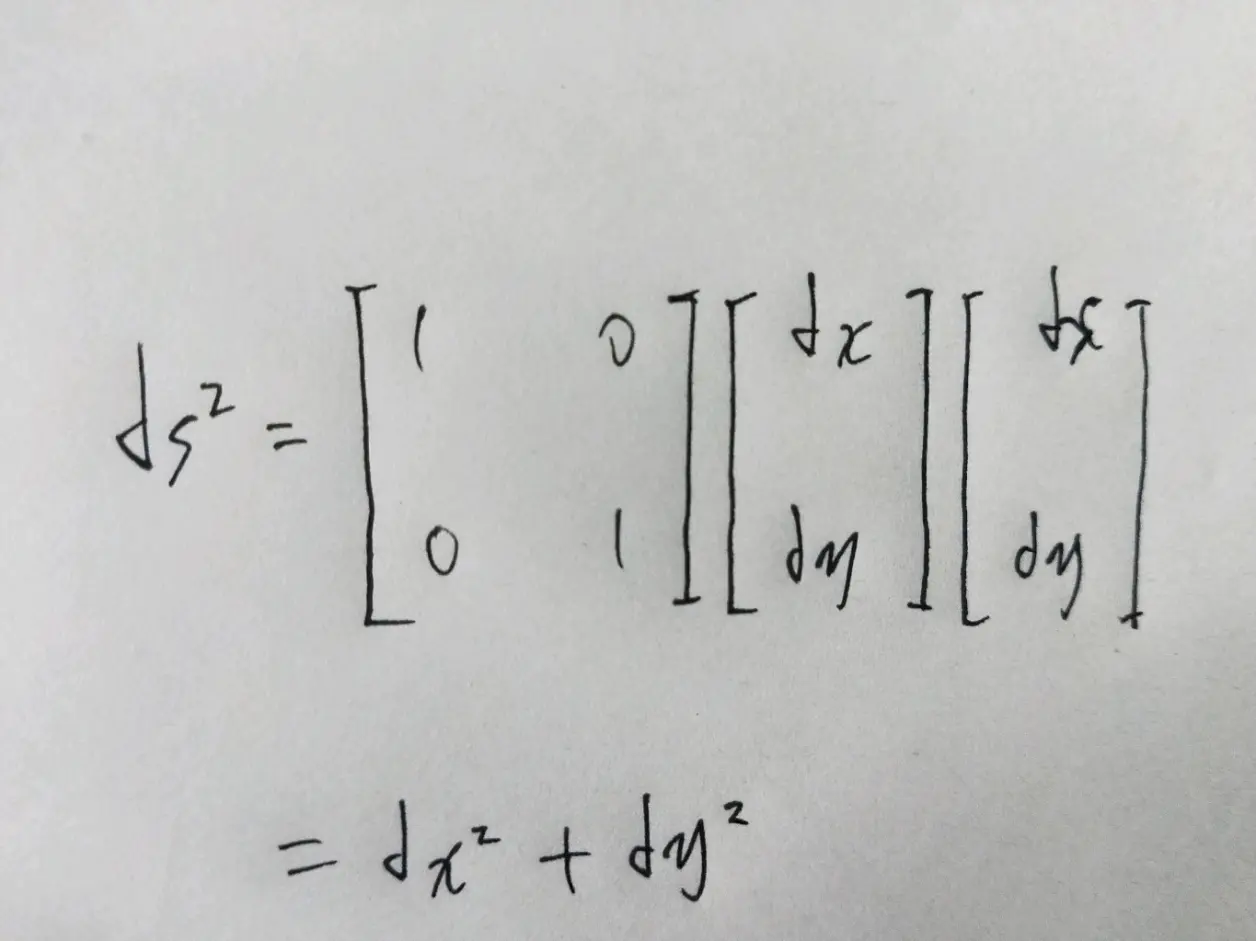 ds² = [1 0 0 1] [dx dy] [dx dy]
= dx² + dy²